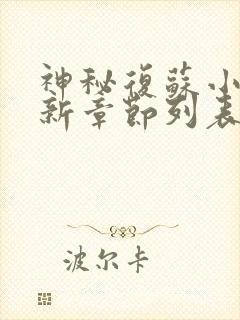 神秘復蘇小
新章節列表
波尔卡